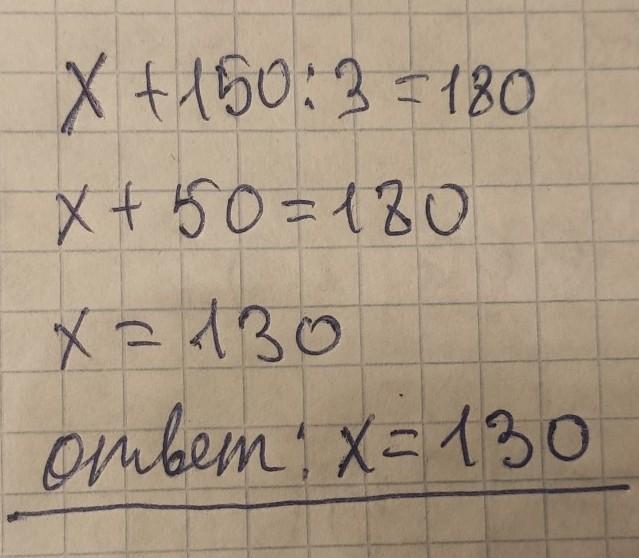 x + 150 : 3 = 180
x + 50 = 180
x = 130
ответ: x = 130